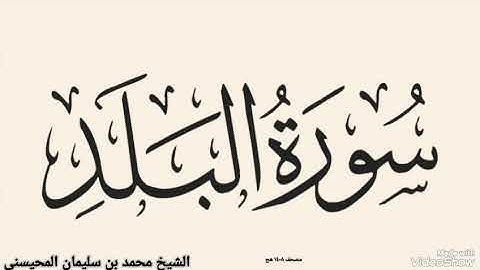 سُورَةُ البَلَدِ
الشيخ محمد بن سليمان المحيسني
مصحف ١٤٠٨ هج
Made with
VideoShow